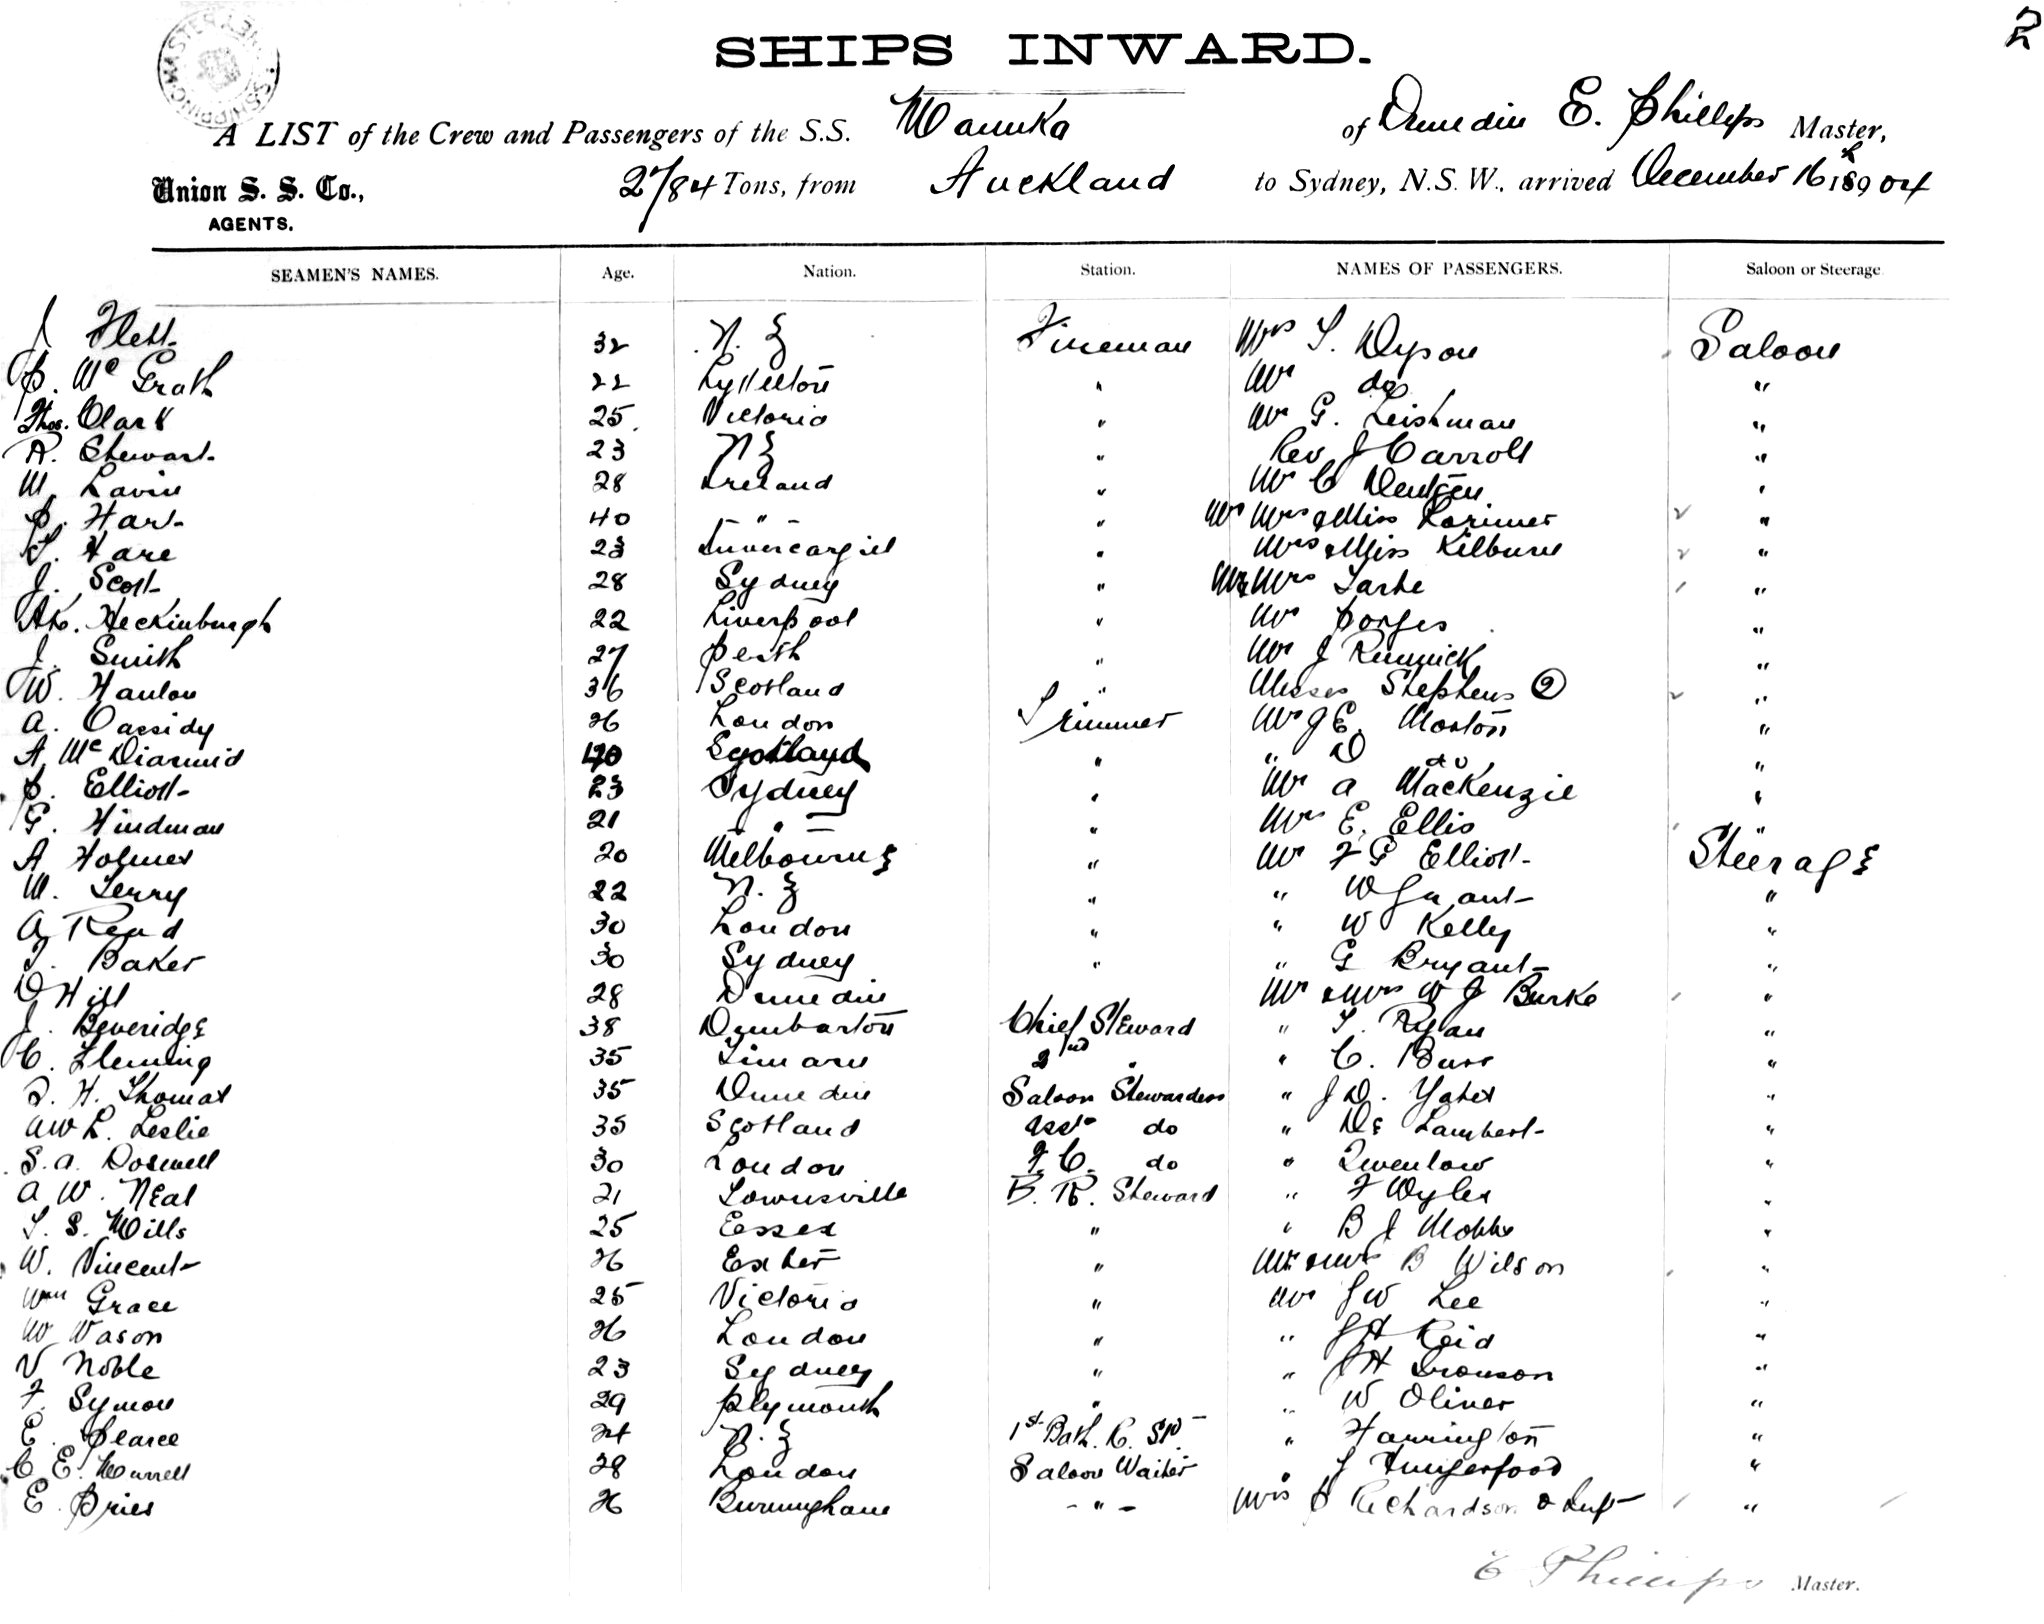 2
SHIPS INWARD.
A LIST of the Crew and Passengers of the S.S. Manuka of Dunedin E. Phillips Master,
Union S. S. Co., 2784 Tons, from Auckland to Sydney, N.S.W., arrived December 16th 18904
AGENTS.
SEAMEN'S NAMES. Age. Nation. Station. NAMES OF PASSENGERS. Saloon or Steerage
J Flett 32 N. Z Fireman Mrs T. Dyson Saloon
P. McGrath 22 Lyttelton " Mr do "
Thos. Clark 25 Victoria " Mr G. Leishman "
R. Stewart 23 N Z " Rev J Carroll "
M. Lavin 28 Ireland " Mr C "
P. Hart 40 - " - " Mr Mrs & Miss Lorimer "
T. Hare 23 Invercargill " Mrs & Miss Kilburn "
J. Scott 28 Sydney " Mr & Mrs "
Heckinburgh 22 Liverpool " Mr "
J. Smith 27 Perth " Mr J Rennick "
W. Hanlon 36 Scotland " Misses Stephens 2 "
A. Cassidy 26 London Trimmer Mr J E. Moston "
A McDiarmid 40 Scotland " " D do "
P. Elliott 23 Sydney " Mr A MacKenzie "
G. Hindman 21 - " - " Mrs E. Ellis "
A Holmes 20 Melbourne " Mr F G Elliott Steerage
M. Terry 22 N. Z " " W Grant "
A Read 30 London " " W Kelly "
T. Baker 30 Sydney " " G Bryant "
D Hill 28 Dunedin Mr & Mrs W J Burke "
J. Beveridge 38 Dumbarton Chief Steward " T. Ryan "
C. Fleming 35 Timaru 2nd " " C. "
H. Thomas 35 Dunedin Saloon Stewardess " J D. Yates "
L. Leslie 35 Scotland Asst do " De Lambert "
S. A. Doswell 30 London F. C. do " "
A W. Neal 21 Townsville B. R. Steward " F Wyles "
T. S. Mills 25 Essex " " B J Mobbs "
W. Vincent 26 Exeter " Mr & Mrs B Wilson "
Wm Grace 25 Victoria " Mr J W Lee "
W Wason 26 London " " J H Reid "
V Noble 23 Sydney " " J H "
F. Symon 29 Plymouth " " W Oliver "
E. Pearce 24 N. Z 1st Bath. R. St " Harrington "
C E. Murrell 28 London Saloon Waiter " J Hungerfood "
E. Pries 26 Birmingham - " - Mrs Richardson & Inft "
E Phillips Master.